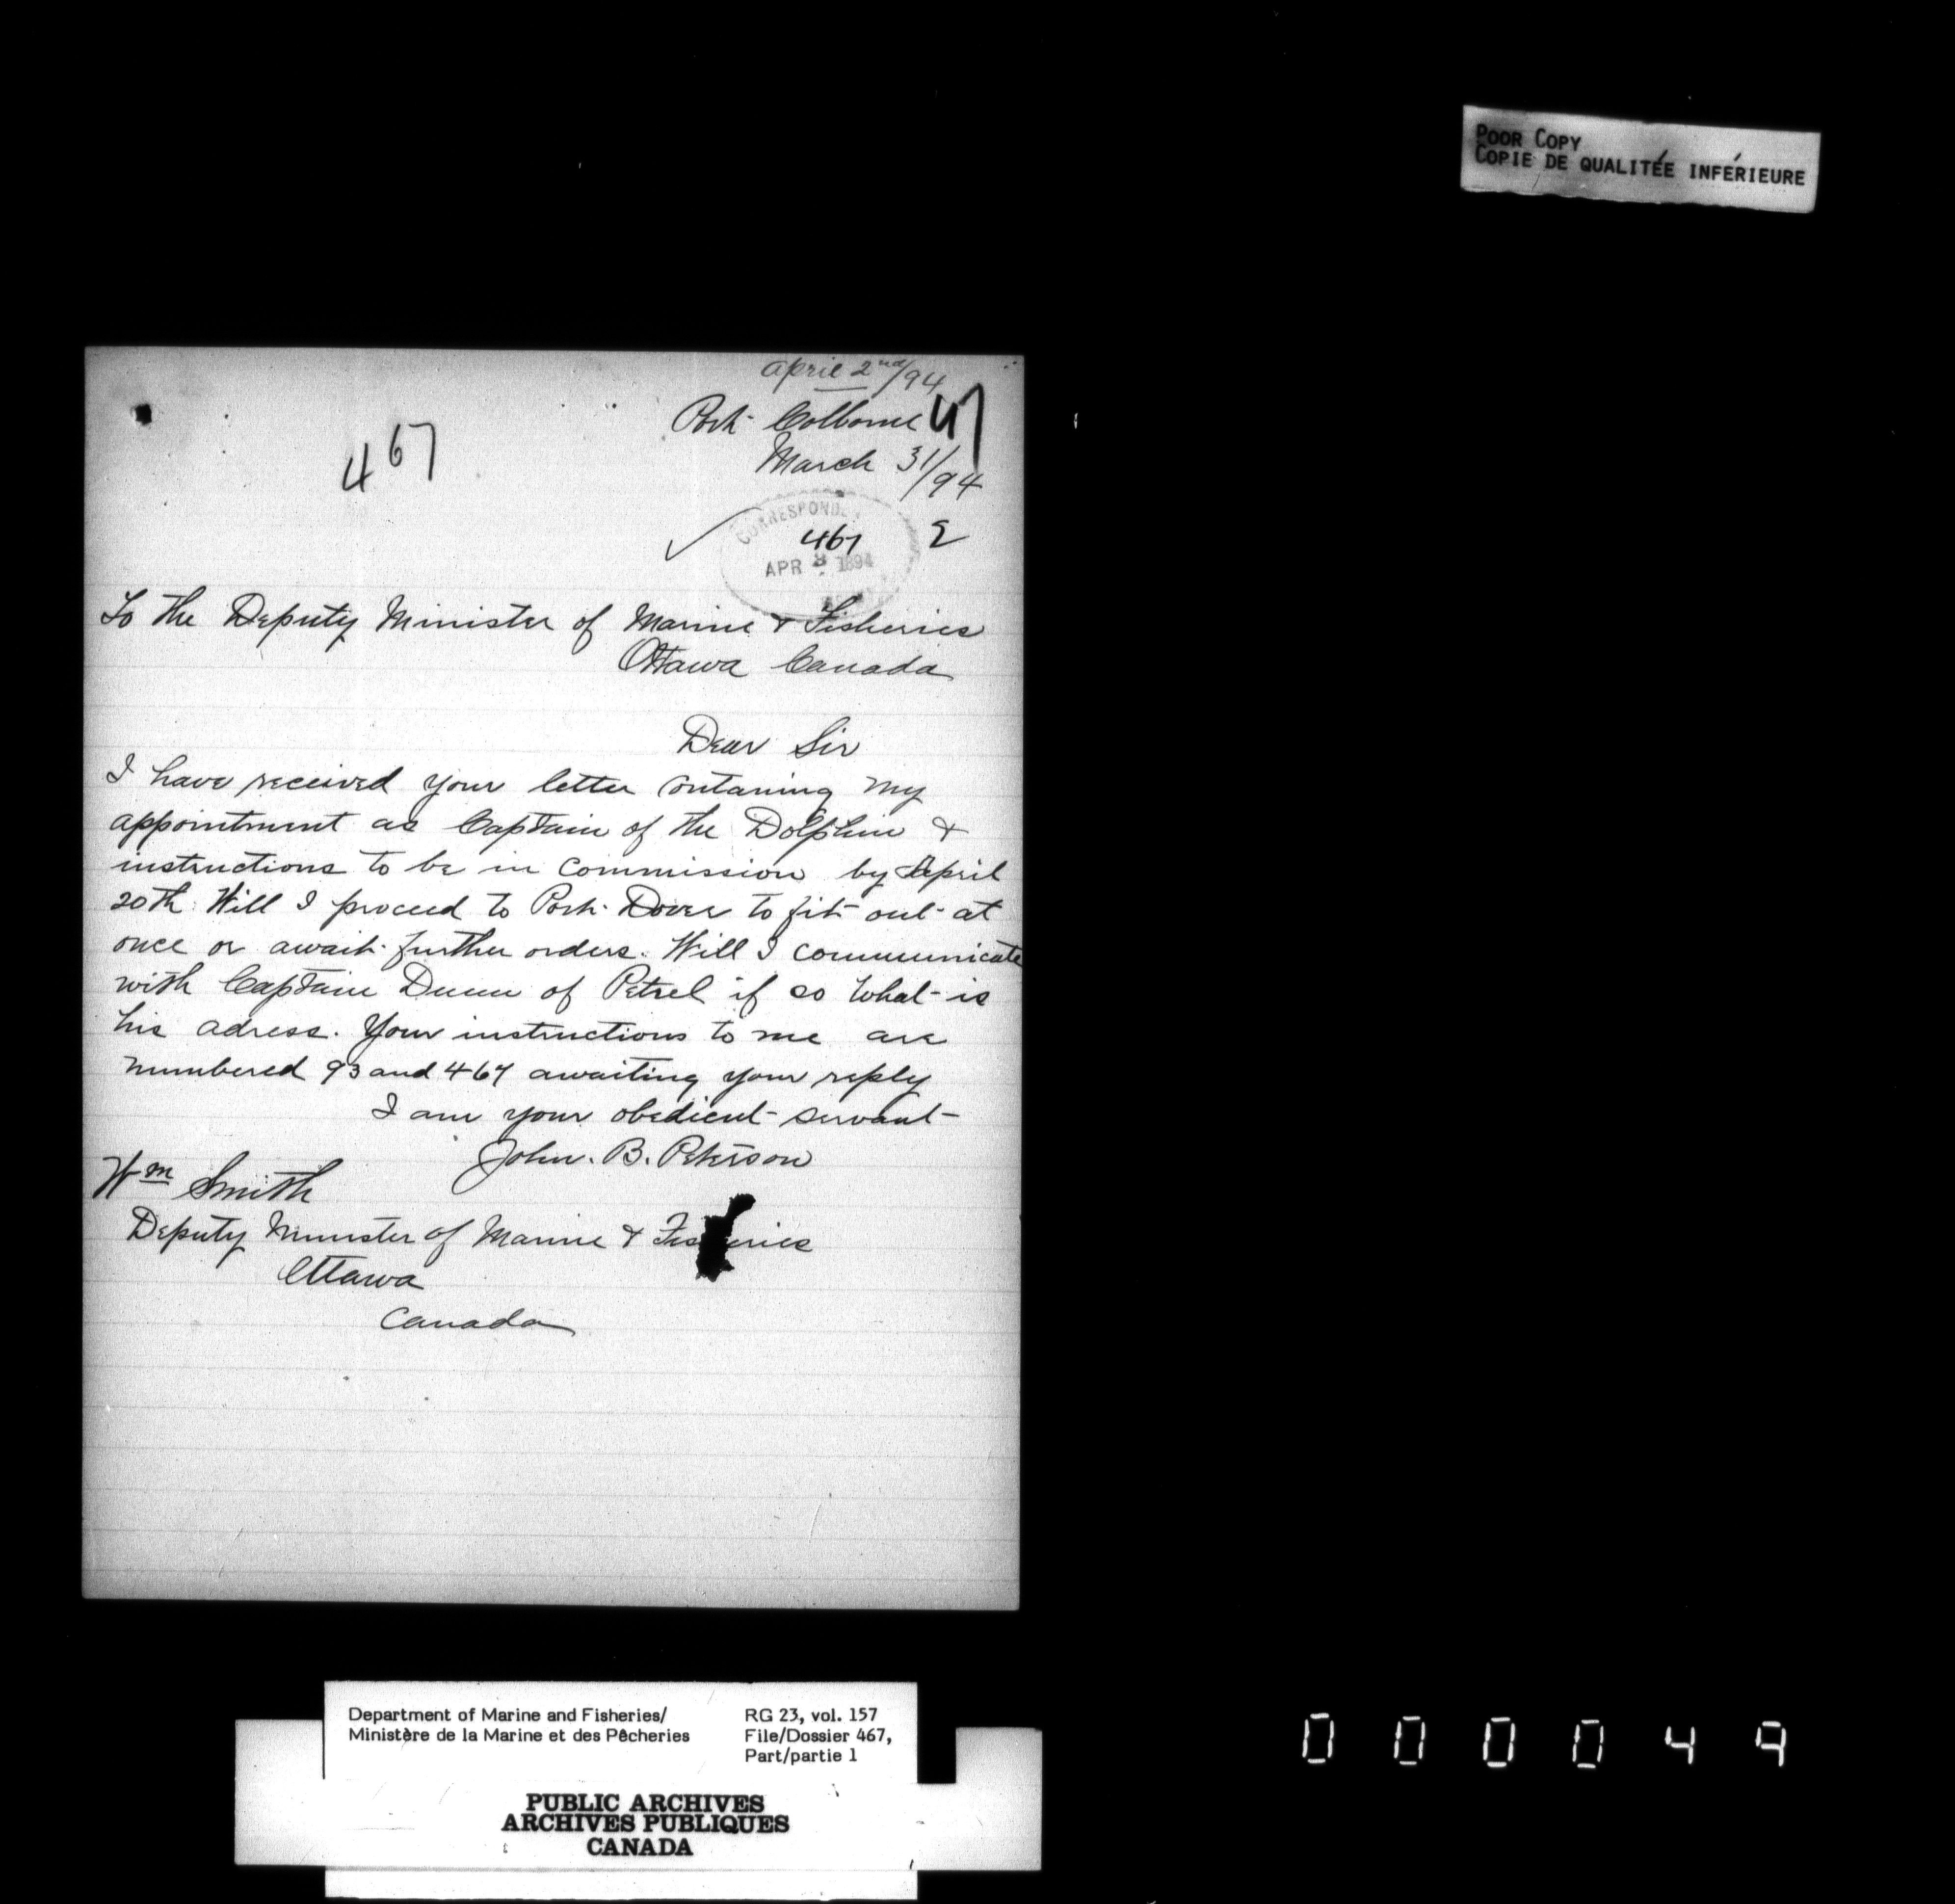 POOR COPY
COPIE DE QUALITÉE INFÉRIEURE
april 2nd/94
Port Colborne 47
March 31/94
467
CORRESPOND
467 2
APR 3 1894
To the Deputy Minister of Marine & Fisheries
Ottawa Canada
Dear Sir
I have received your letter contaning my
appointment as Captain of the Dolphin &
instructions to be in commission by April
20th Will I proceed to Port Dover to fit out at
once or await further orders. Will I communicate
with Captain Dunn of Petrel if so what is
his adress. Your instructions to me are
numbered 93 and 467 awaiting your reply
I am your obedient servant
John. B. Peterson
Wm Smith
Deputy Minister of Marine & Fisheries
Ottawa
Canada
Department of Marine and Fisheries/
Ministère de la Marine et des Pêcheries
RG 23, vol. 157
File/Dossier 467,
Part/partie 1
PUBLIC ARCHIVES
ARCHIVES PUBLIQUES
CANADA
000049